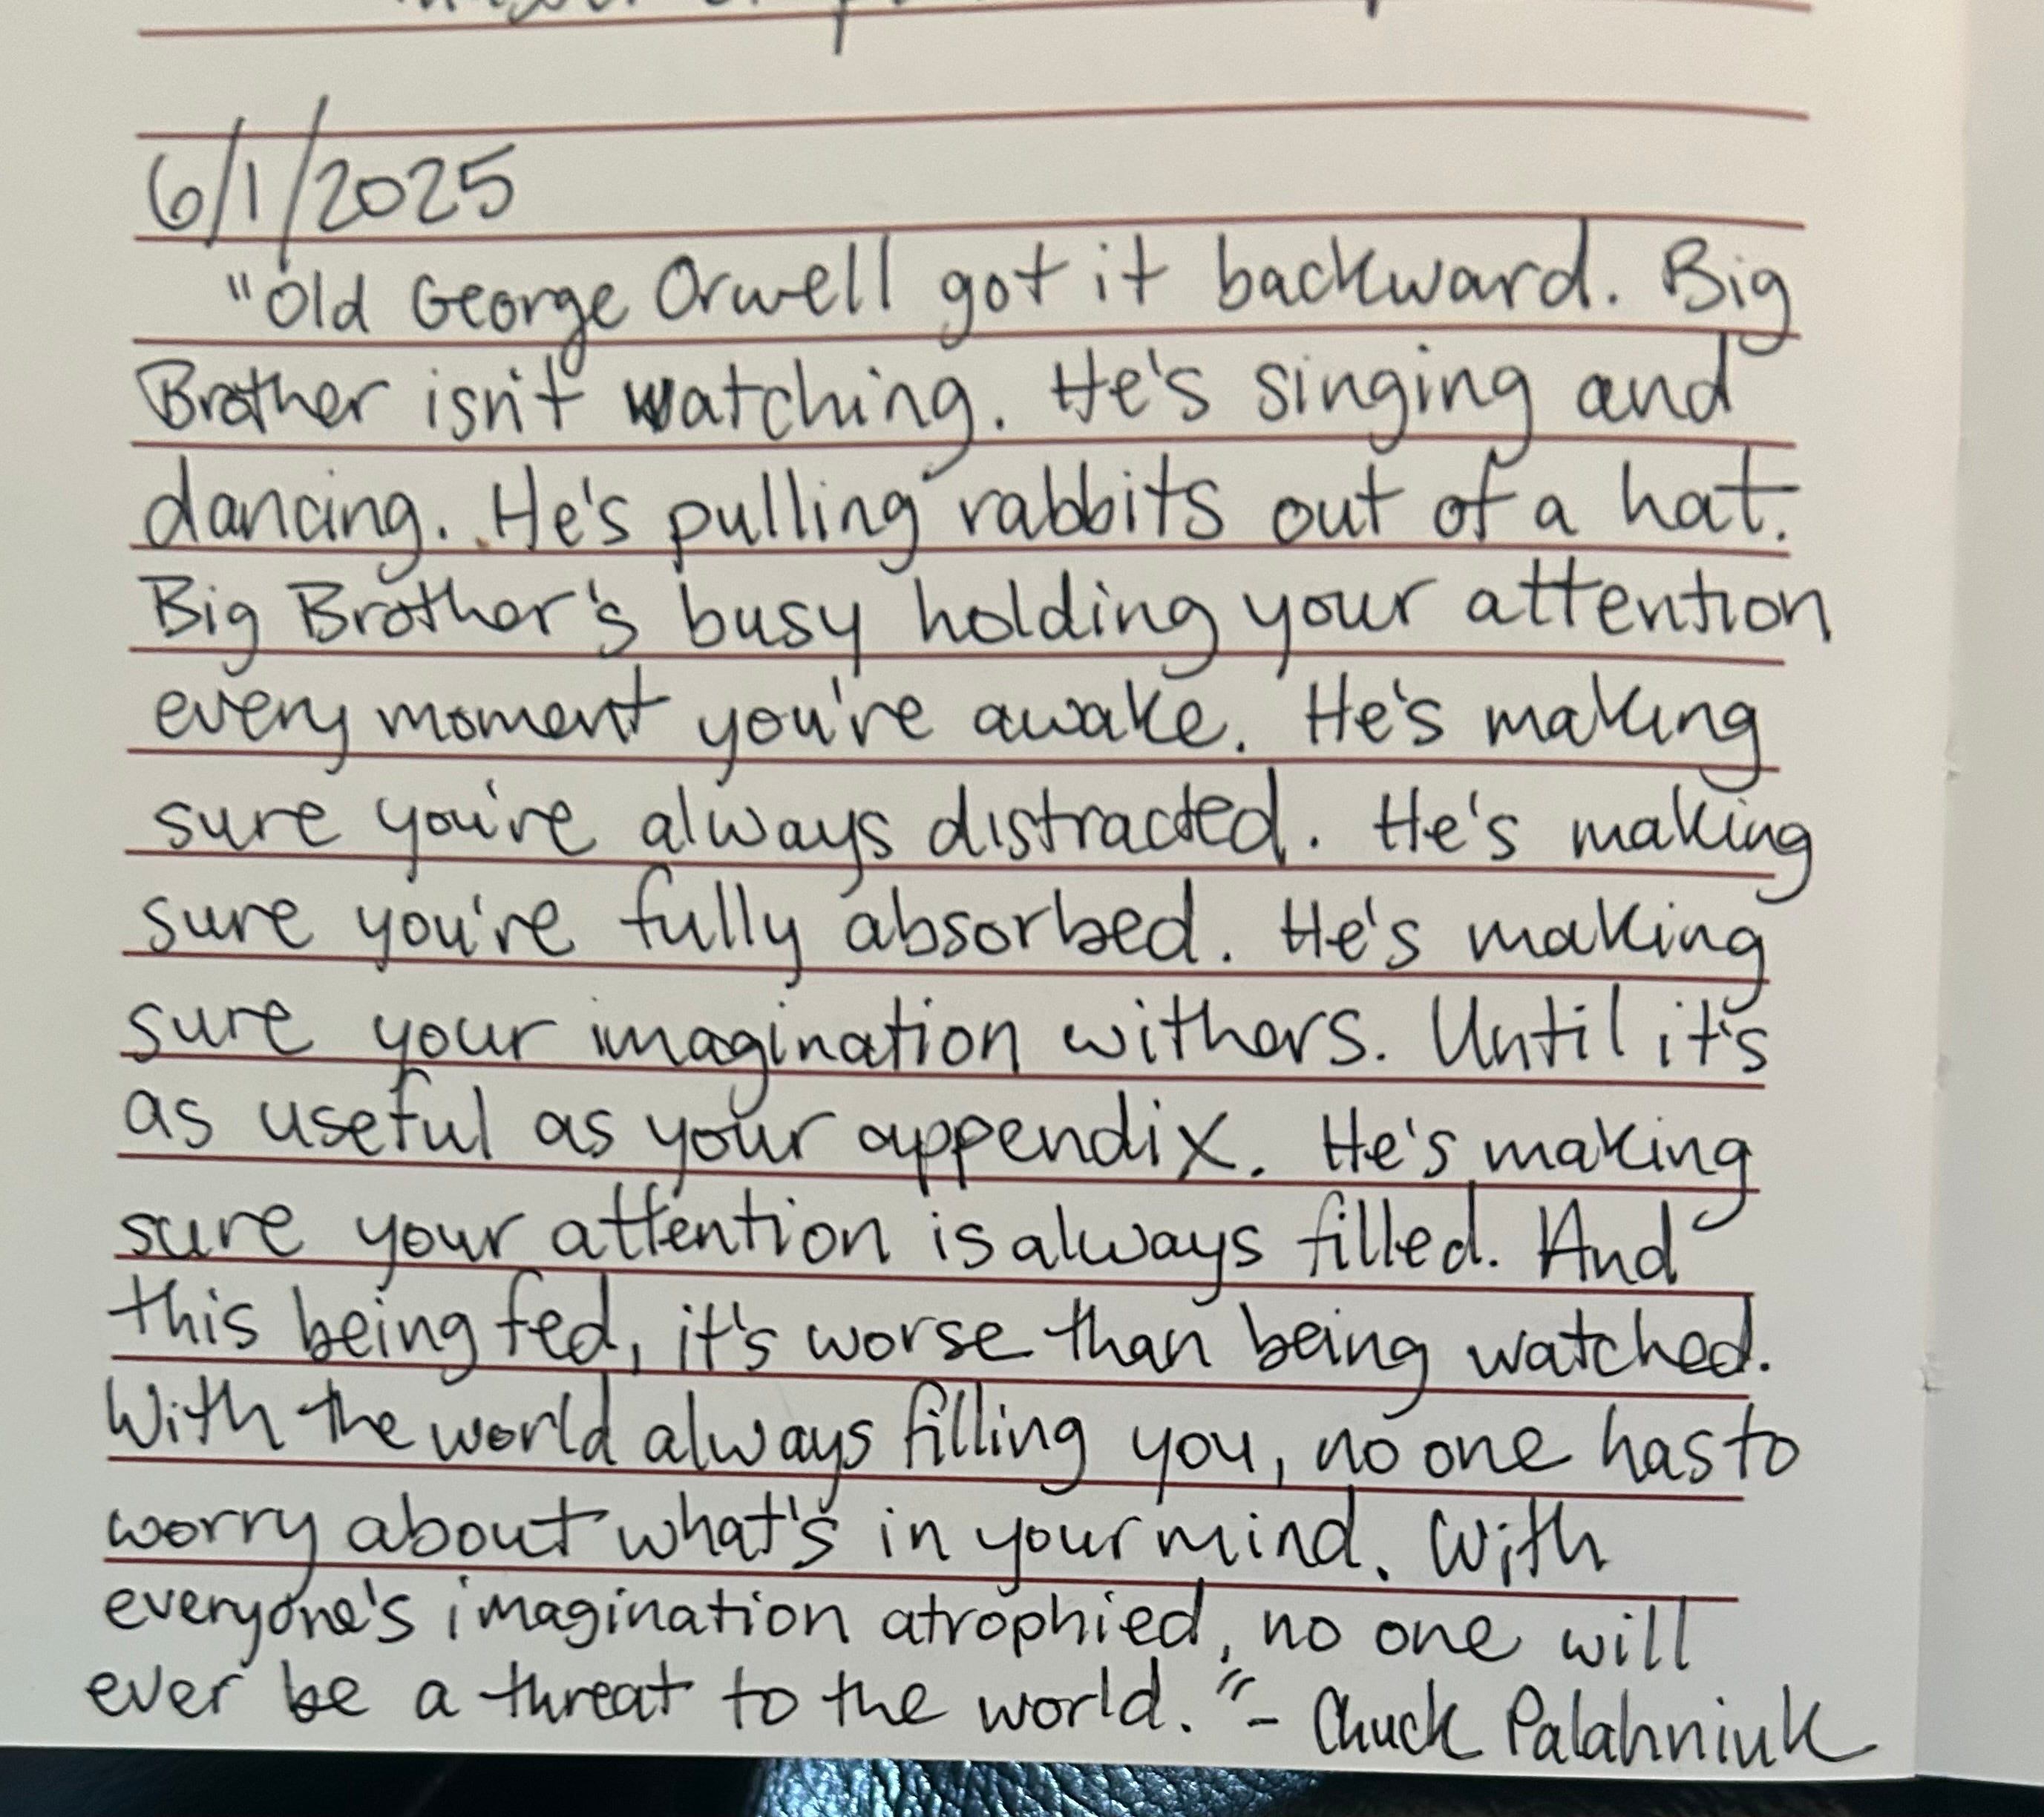 6/1/2025
"Old George Orwell got it backward. Big
Brother isn't watching. He's singing and
dancing. He's pulling rabbits out of a hat.
Big Brother's busy holding your attention
every moment you're awake. He's making
sure you're always distracted. He's making
sure you're fully absorbed. He's making
sure your imagination withers. Until it's
as useful as your appendix. He's making
sure your attention is always filled. And
this being fed, it's worse than being watched.
With the world always filling you, no one has to
worry about what's in your mind. With
everyone's imagination atrophied, no one will
ever be a threat to the world." - Chuck Palahniuk